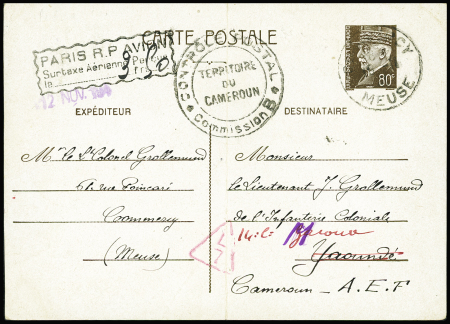 CARTE POSTALE
PARIS R.P AVION
Surtaxe Aérienne Perçue
le
fr
12 NOV.
CONTRÔLE POSTAL
Commission B
TERRITOIRE
DU
CAMEROUN
80c
MEUSE
EXPÉDITEUR
DESTINATAIRE
Mr le Lt Colonel Grollemund
rue Poincaré
Commercy
(Meuse)
Monsieur
le Lieutenant J. Grollemund
de l'Infanterie Coloniale
Yaoundé
Cameroun - A.E.F